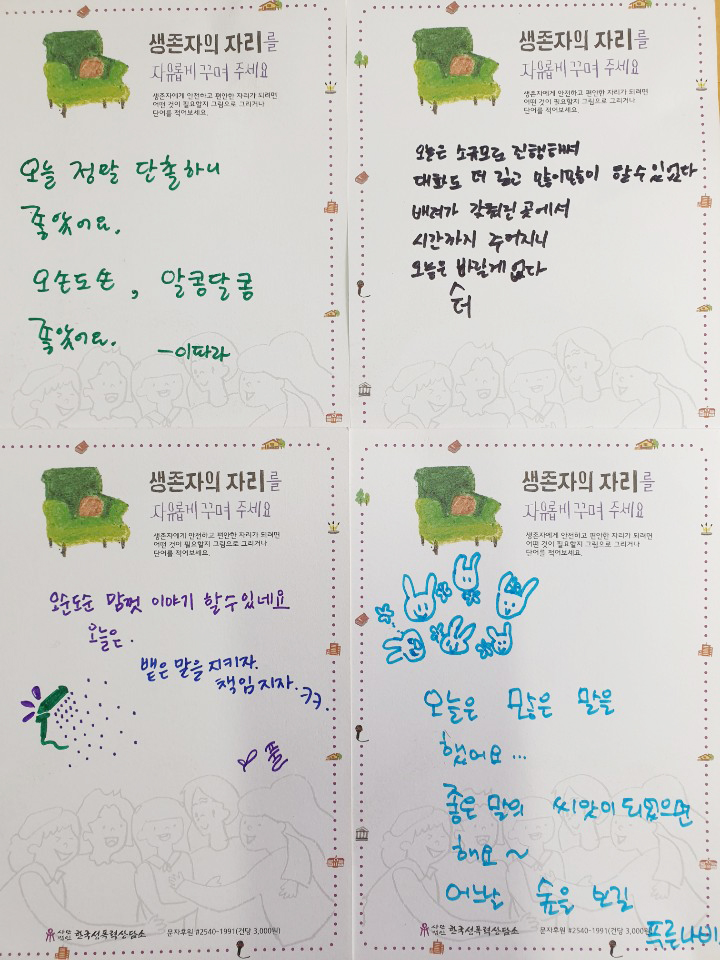 생존자의 자리를
자유롭게 꾸며 주세요
생존자에게 안전하고 편안한 자리가 되려면
어떤 것이 필요할지 그림으로 그리거나
단어를 적어보세요.
오늘 정말 단촐하니
좋았어요.
오손도손, 알콩달콩
좋았어요.
-이따라
생존자의 자리를
자유롭게 꾸며 주세요
생존자에게 안전하고 편안한 자리가 되려면
어떤 것이 필요할지 그림으로 그리거나
단어를 적어보세요.
오늘은 소규모로 진행해서
대화도 더 길고 많이많이 할 수 있었다
배려가 갖춰진 곳에서
시간까지 주어지니
오늘은 바랄게 없다
생존자의 자리를
자유롭게 꾸며 주세요
생존자에게 안전하고 편안한 자리가 되려면
어떤 것이 필요할지 그림으로 그리거나
단어를 적어보세요.
오순도순 맘껏 이야기 할 수 있네요
오늘은.
뱉은 말을 지키자.
책임지자. ㅋㅋ.
풀
사단법인 한국성폭력상담소
문자후원 #2540-1991(건당 3,000원)
생존자의 자리를
자유롭게 꾸며 주세요
생존자에게 안전하고 편안한 자리가 되려면
어떤 것이 필요할지 그림으로 그리거나
단어를 적어보세요.
오늘은 많은 말을
했어요...
좋은 말의 씨앗이 되었으면
해요~
어느날 숲을 보길
푸른나비
사단법인 한국성폭력상담소
문자후원 #2540-1991(건당 3,000원)